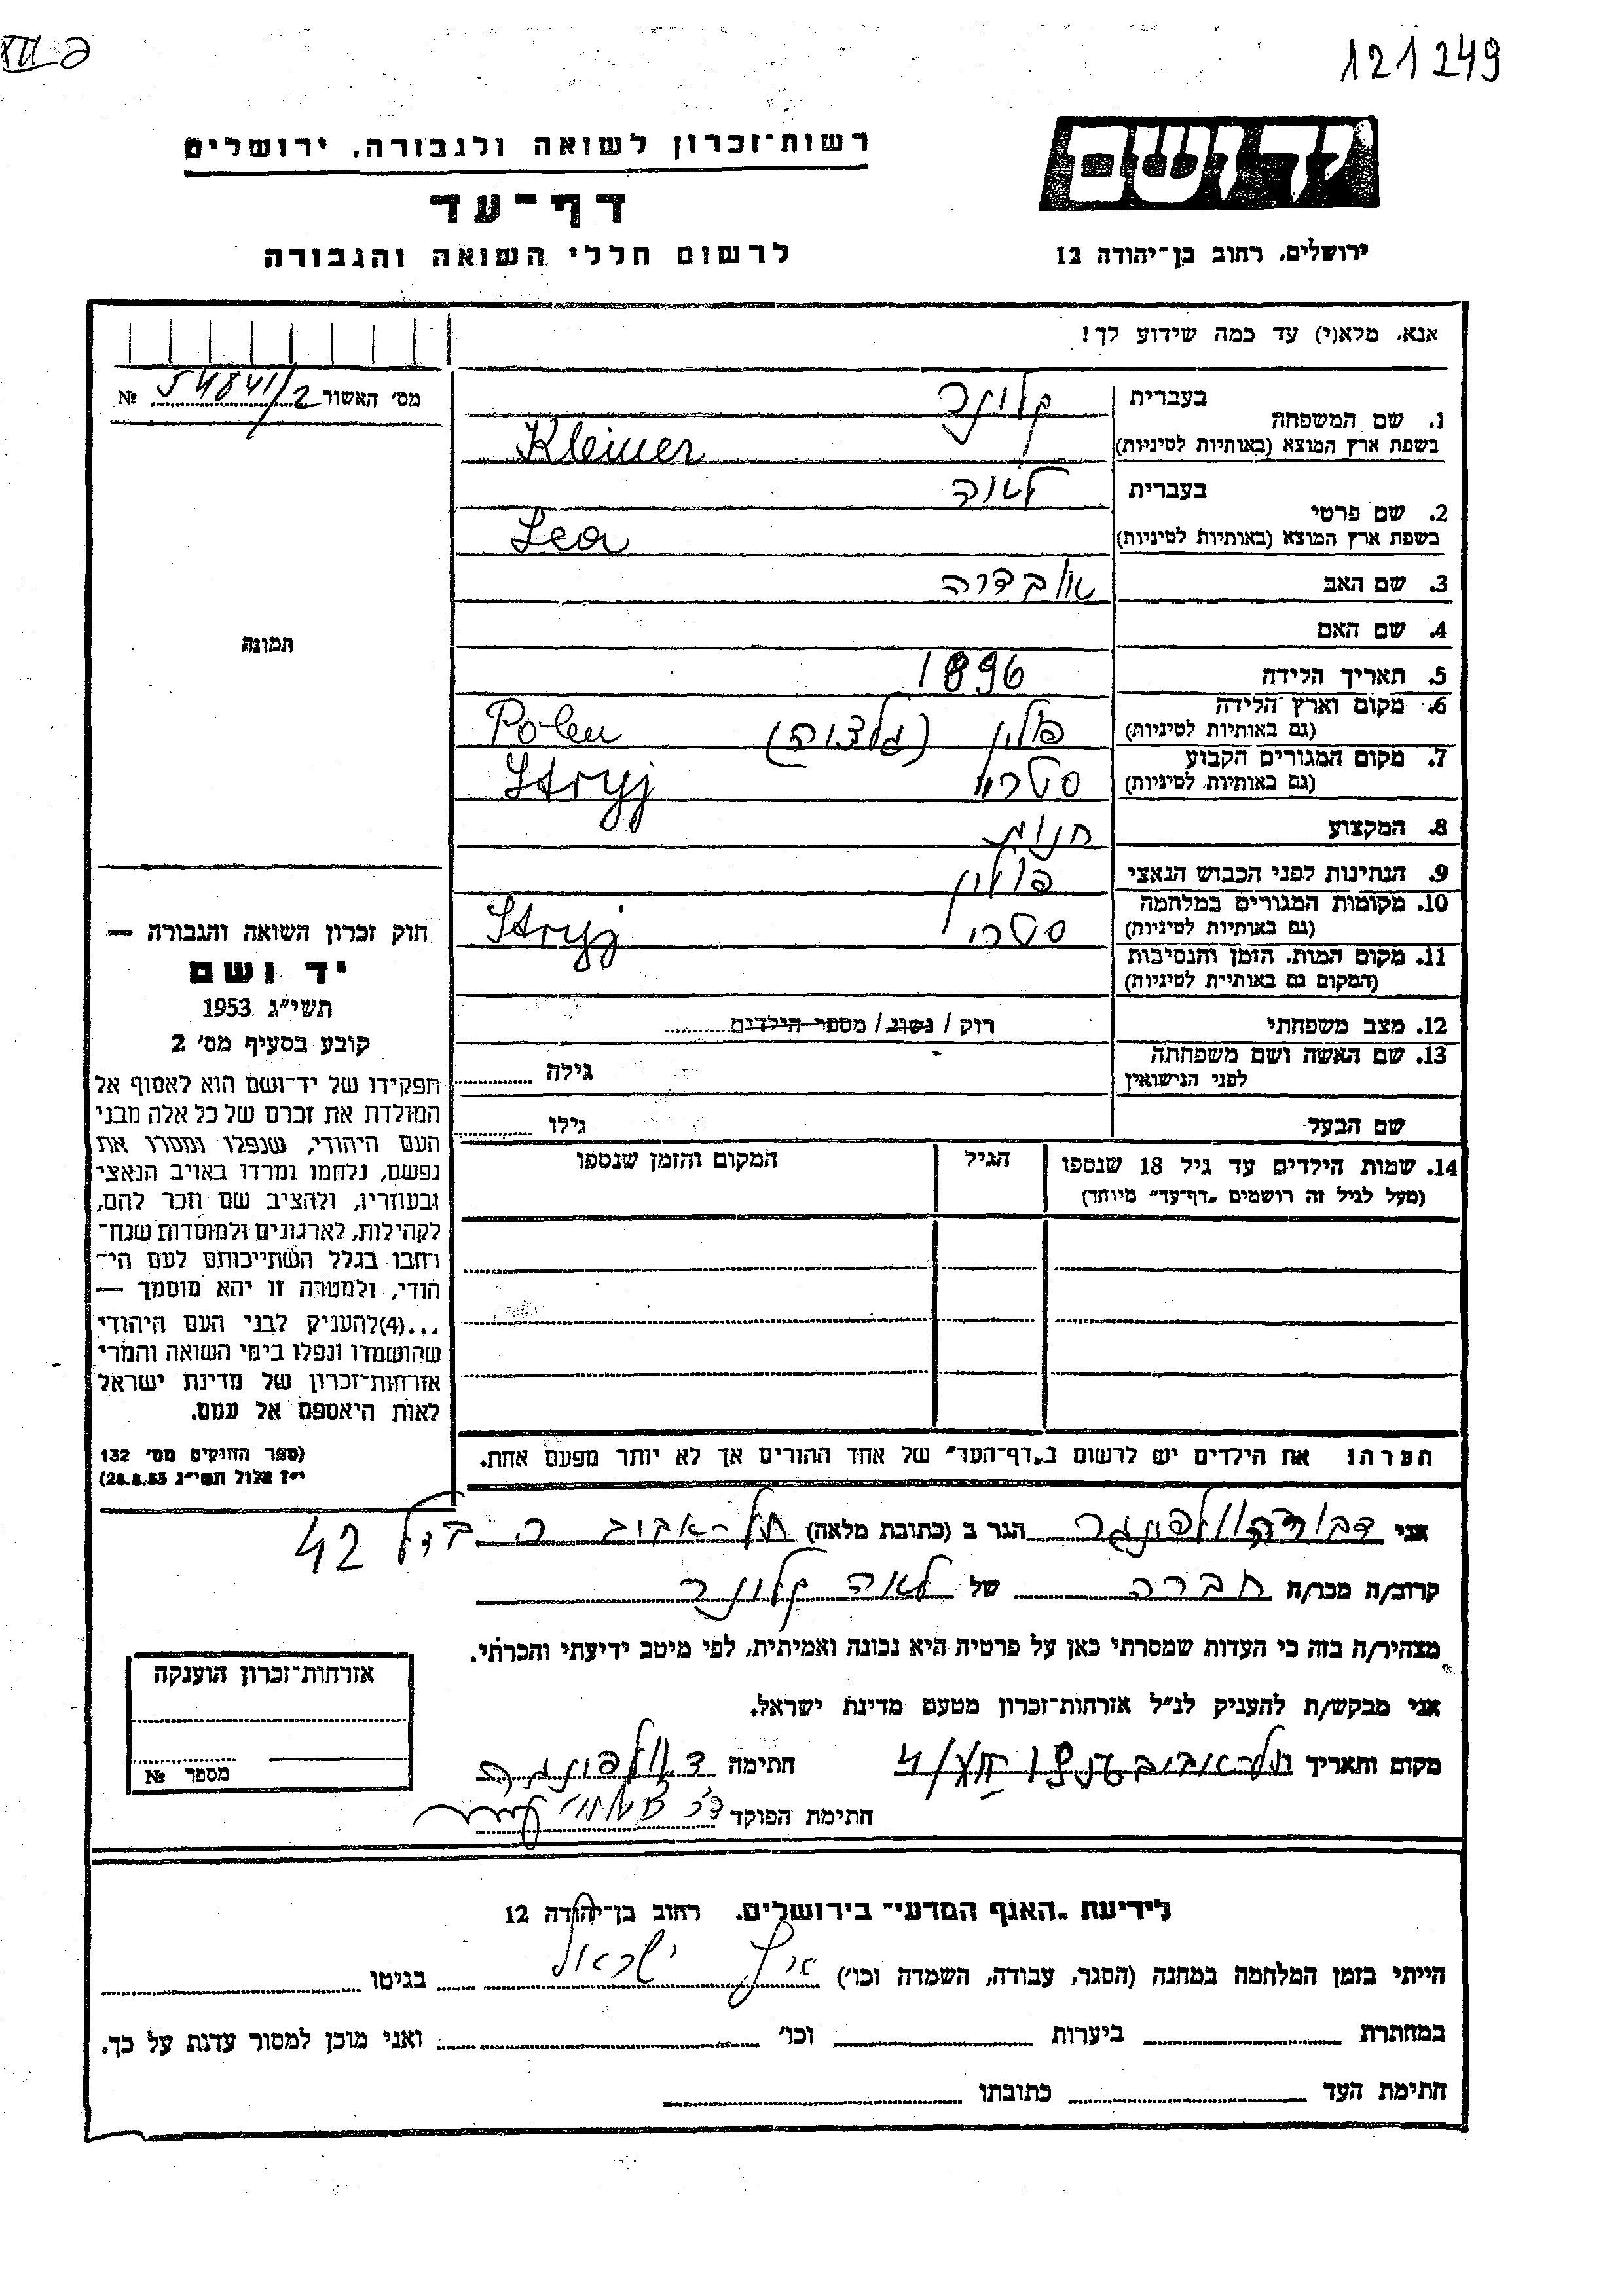 121249
רשות־זכרון לשואה ולגבורה, ירושלים
יד ושם
דף־עד
לרשום חללי השואה והגבורה
ירושלים, רחוב בן־יהודה 12
אנא, מלא(י) עד כמה שידוע לך!
מס׳ האשור 54841/2 №
1. שם המשפחה
בעברית קלינר
בשפת ארץ המוצא (באותיות לטיניות) Kleiner
2. שם פרטי
בעברית לאה
בשפת ארץ המוצא (באותיות לטיניות) Lea
3. שם האב
4. שם האם
תמונה
5. תאריך הלידה 1896
6. מקום וארץ הלידה
(גם באותיות לטיניות) פולין (גליציה) Polen
7. מקום המגורים הקבוע
(גם באותיות לטיניות) סטרי Stryj
8. המקצוע חנות
9. הנתינות לפני הכבוש הנאצי פולין
10. מקומות המגורים במלחמה
(גם באותיות לטיניות) סטרי Stryj
11. מקום המות, הזמן והנסיבות
(המקום גם באותיית לטיניות)
12. מצב משפחתי רוק / נשוי / מספר הילדים
13. שם האשה ושם משפחתה
לפני הנישואין גילה
שם הבעל גילו
14. שמות הילדים עד גיל 18 שנספו הגיל המקום והזמן שנספו
(מעל לגיל זה רושמים „דף־עד״ מיוחד)
חוק זכרון השואה והגבורה —
יד ושם
תשי״ג 1953
קובע בסעיף מס׳ 2
תפקידו של יד־ושם הוא לאסוף אל
המולדת את זכרם של כל אלה מבני
העם היהודי, שנפלו ומסרו את
נפשם, נלחמו ומרדו באויב הנאצי
ובעוזריו, ולהציב שם וזכר להם,
לקהילות, לארגונים ולמוסדות שנח־
רחבו בגלל השתייכותם לעם הי־
הודי, ולמטרה זו יהא מוסמך —
...(4)להעניק לבני העם היהודי
שהושמדו ונפלו בימי השואה והמרי
אזרחות־זכרון של מדינת ישראל
לאות היאספם אל עמם.
(ספר החוקים מס׳ 132
י״ז אלול תשי״ג 28.8.53)
הערה! את הילדים יש לרשום ב„דף־העד״ של אחד ההורים אך לא יותר מפעם אחת.
אני דבורה הגר ב (כתובת מלאה) תל־אביב 42
קרוב/ה מכר/ה חברה של לאה קלינר
מצהיר/ה בזה כי העדות שמסרתי כאן על פרטיה היא נכונה ואמיתית, לפי מיטב ידיעתי והכרתי.
אני מבקש/ת להעניק לנ״ל אזרחות־זכרון מטעם מדינת ישראל.
מקום ותאריך תל־אביב חתימה
חתימת הפוקד
אזרחות־זכרון הוענקה
מספר №
לידיעת „האגף המדעי״ בירושלים. רחוב בן־יהודה 12
הייתי בזמן המלחמה במחנה (הסגר, עבודה, השמדה וכו׳) ארץ ישראל בגיטו
במחתרת ביערות וכו׳ ואני מוכן למסור עדות על כך.
חתימת העד כתובתו